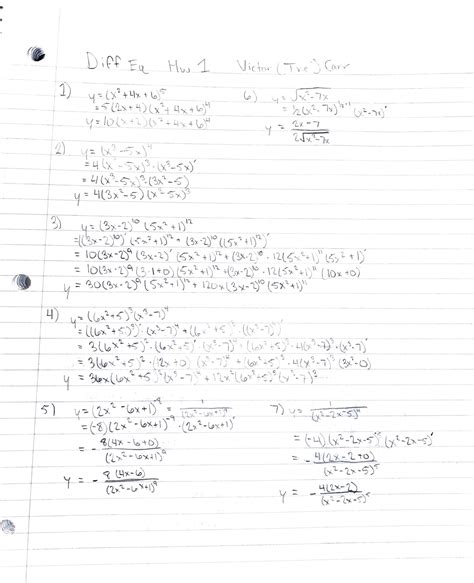 Diff Eq Hw 1 Victor (Tre) Carr
1) y = (x² + 4x + 6)⁵
= 5(2x + 4)(x² + 4x + 6)⁴
y = 10(x + 2)(x² + 4x + 6)⁴
2) y = (x³ - 5x)⁴
= 4(x³ - 5x)³ · (x³ - 5x)'
= 4(x³ - 5x)³ · (3x² - 5)
y = 4(3x² - 5)(x³ - 5x)³
3) y = (3x - 2)¹⁰ (5x² + 1)¹²
= ((3x - 2)¹⁰)' (5x² + 1)¹² + (3x - 2)¹⁰ ((5x² + 1)¹²)'
= 10(3x - 2)⁹ (3x - 2)' (5x² + 1)¹² + (3x - 2)¹⁰ · 12(5x² + 1)¹¹ (5x² + 1)'
= 10(3x - 2)⁹ (3 · 1 + 0) (5x² + 1)¹² + (3x - 2)¹⁰ · 12(5x² + 1)¹¹ (10x + 0)
y = 30(3x - 2)⁹ (5x² + 1)¹² + 120x(3x - 2)¹⁰ (5x² + 1)¹¹
4) y = (6x² + 5)³ (x³ - 7)⁴
= ((6x² + 5)³)' · (x³ - 7)⁴ + (6x² + 5)³ · ((x³ - 7)⁴)'
= 3(6x² + 5)² · (6x² + 5)' (x³ - 7)⁴ + (6x² + 5)³ · 4(x³ - 7)³ · (x³ - 7)'
= 3(6x² + 5)² · (12x + 0) (x³ - 7)⁴ + (6x² + 5)³ · 4(x³ - 7)³ (3x² - 0)
y = 36x(6x² + 5)² (x³ - 7)⁴ + 12x² (6x² + 5)³ (x³ - 7)³
5) y = (2x² - 6x + 1)⁻⁸ = 1/(2x² - 6x + 1)⁸
= (-8)(2x² - 6x + 1)⁻⁹ · (2x² - 6x + 1)'
= - 8(4x - 6 + 0)/(2x² - 6x + 1)⁹
y = - 8(4x - 6)/(2x² - 6x + 1)⁹
6) y = √(x² - 7x)
= ½(x² - 7x)^(½-1) (x² - 7x)'
y = (2x - 7)/(2√(x² - 7x))
7) y = 1/(x² - 2x - 5)⁴
= (-4)(x² - 2x - 5)⁻⁵ (x² - 2x - 5)'
= - 4(2x - 2 + 0)/(x² - 2x - 5)⁵
y = - 4(2x - 2)/(x² - 2x - 5)⁵